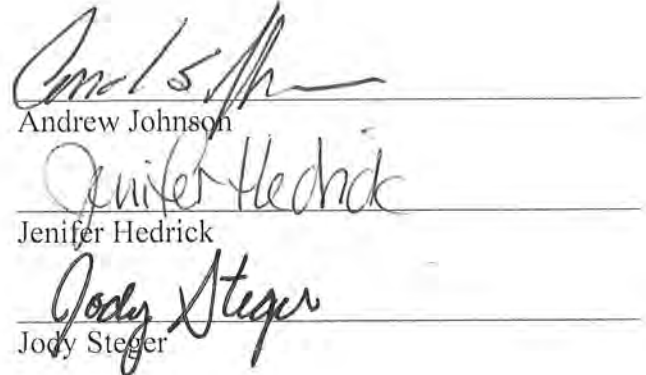 Andrew Johnson
Jenifer Hedrick
Jenifer Hedrick
Jody Steger
Jody Steger